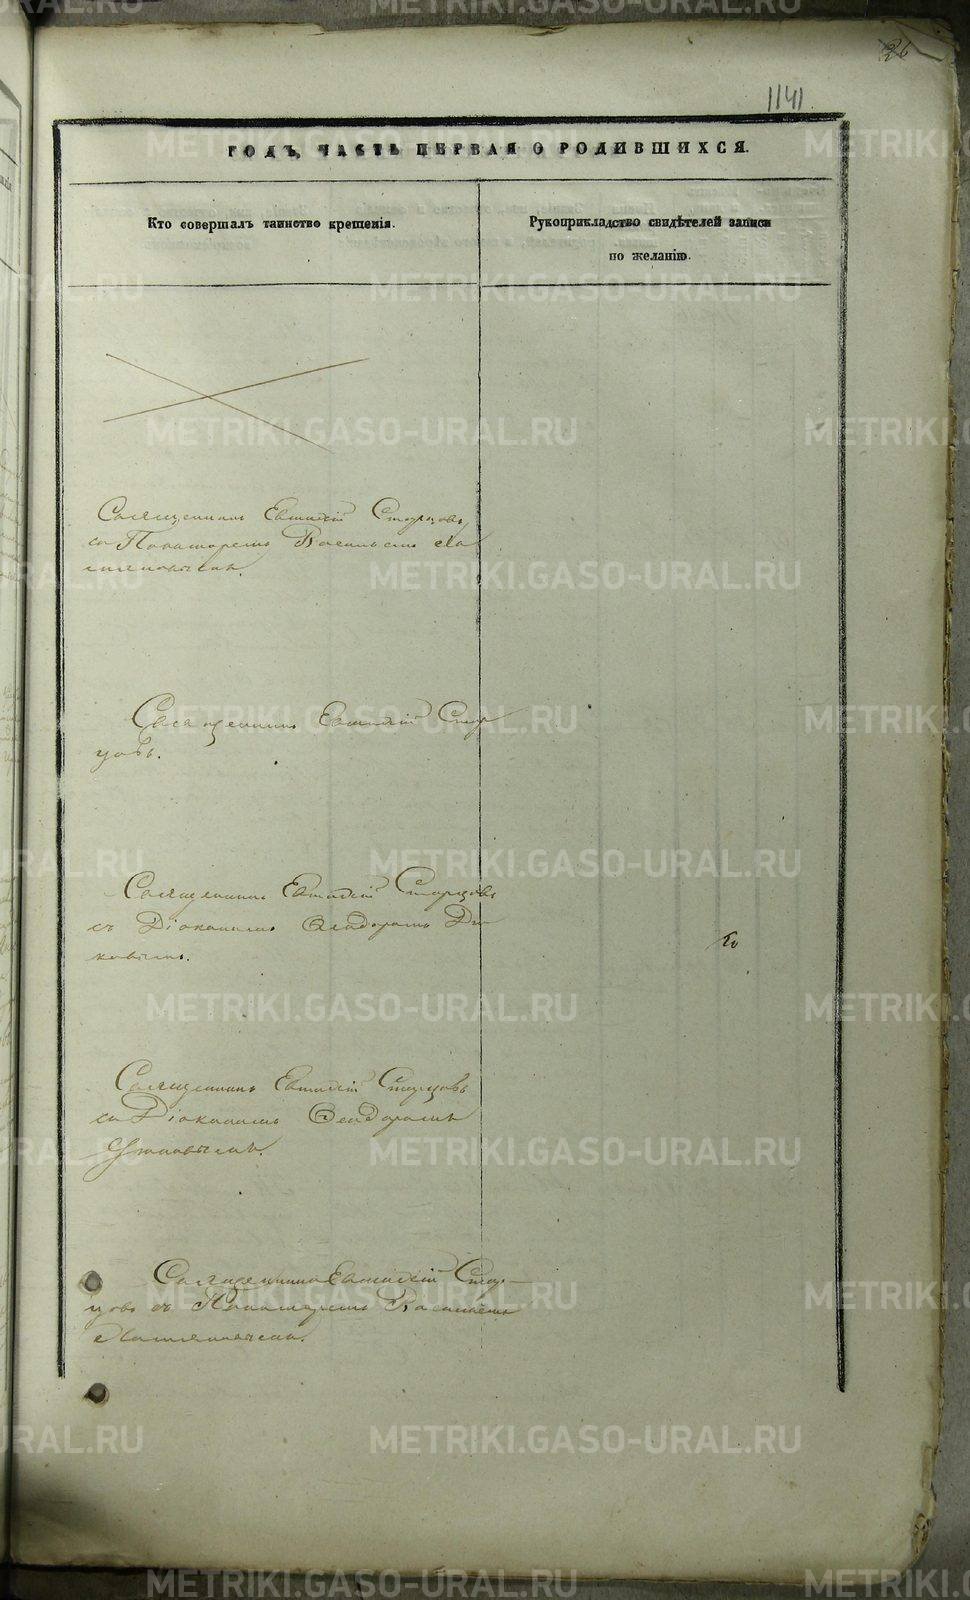 26
1141
ГОДЪ, ЧАСТЬ ПЕРВАЯ О РОДИВШИХСЯ.
Кто совершалъ таинство крещенія.
Рукоприкладство свидѣтелей записи
по желанію.
Священникъ Евтихій Старцовъ
съ Пономаремъ Васильемъ
Священникъ Евтихій Стар
цовъ.
Священникъ Евтихій Старцовъ
съ Діакономъ Ѳеодоромъ
Священникъ Евтихій Старцовъ
съ Діакономъ Ѳеодоромъ
Священникъ Евтихій Стар-
цовъ съ Пономаремъ Васильемъ
METRIKI.GASO-URAL.RU